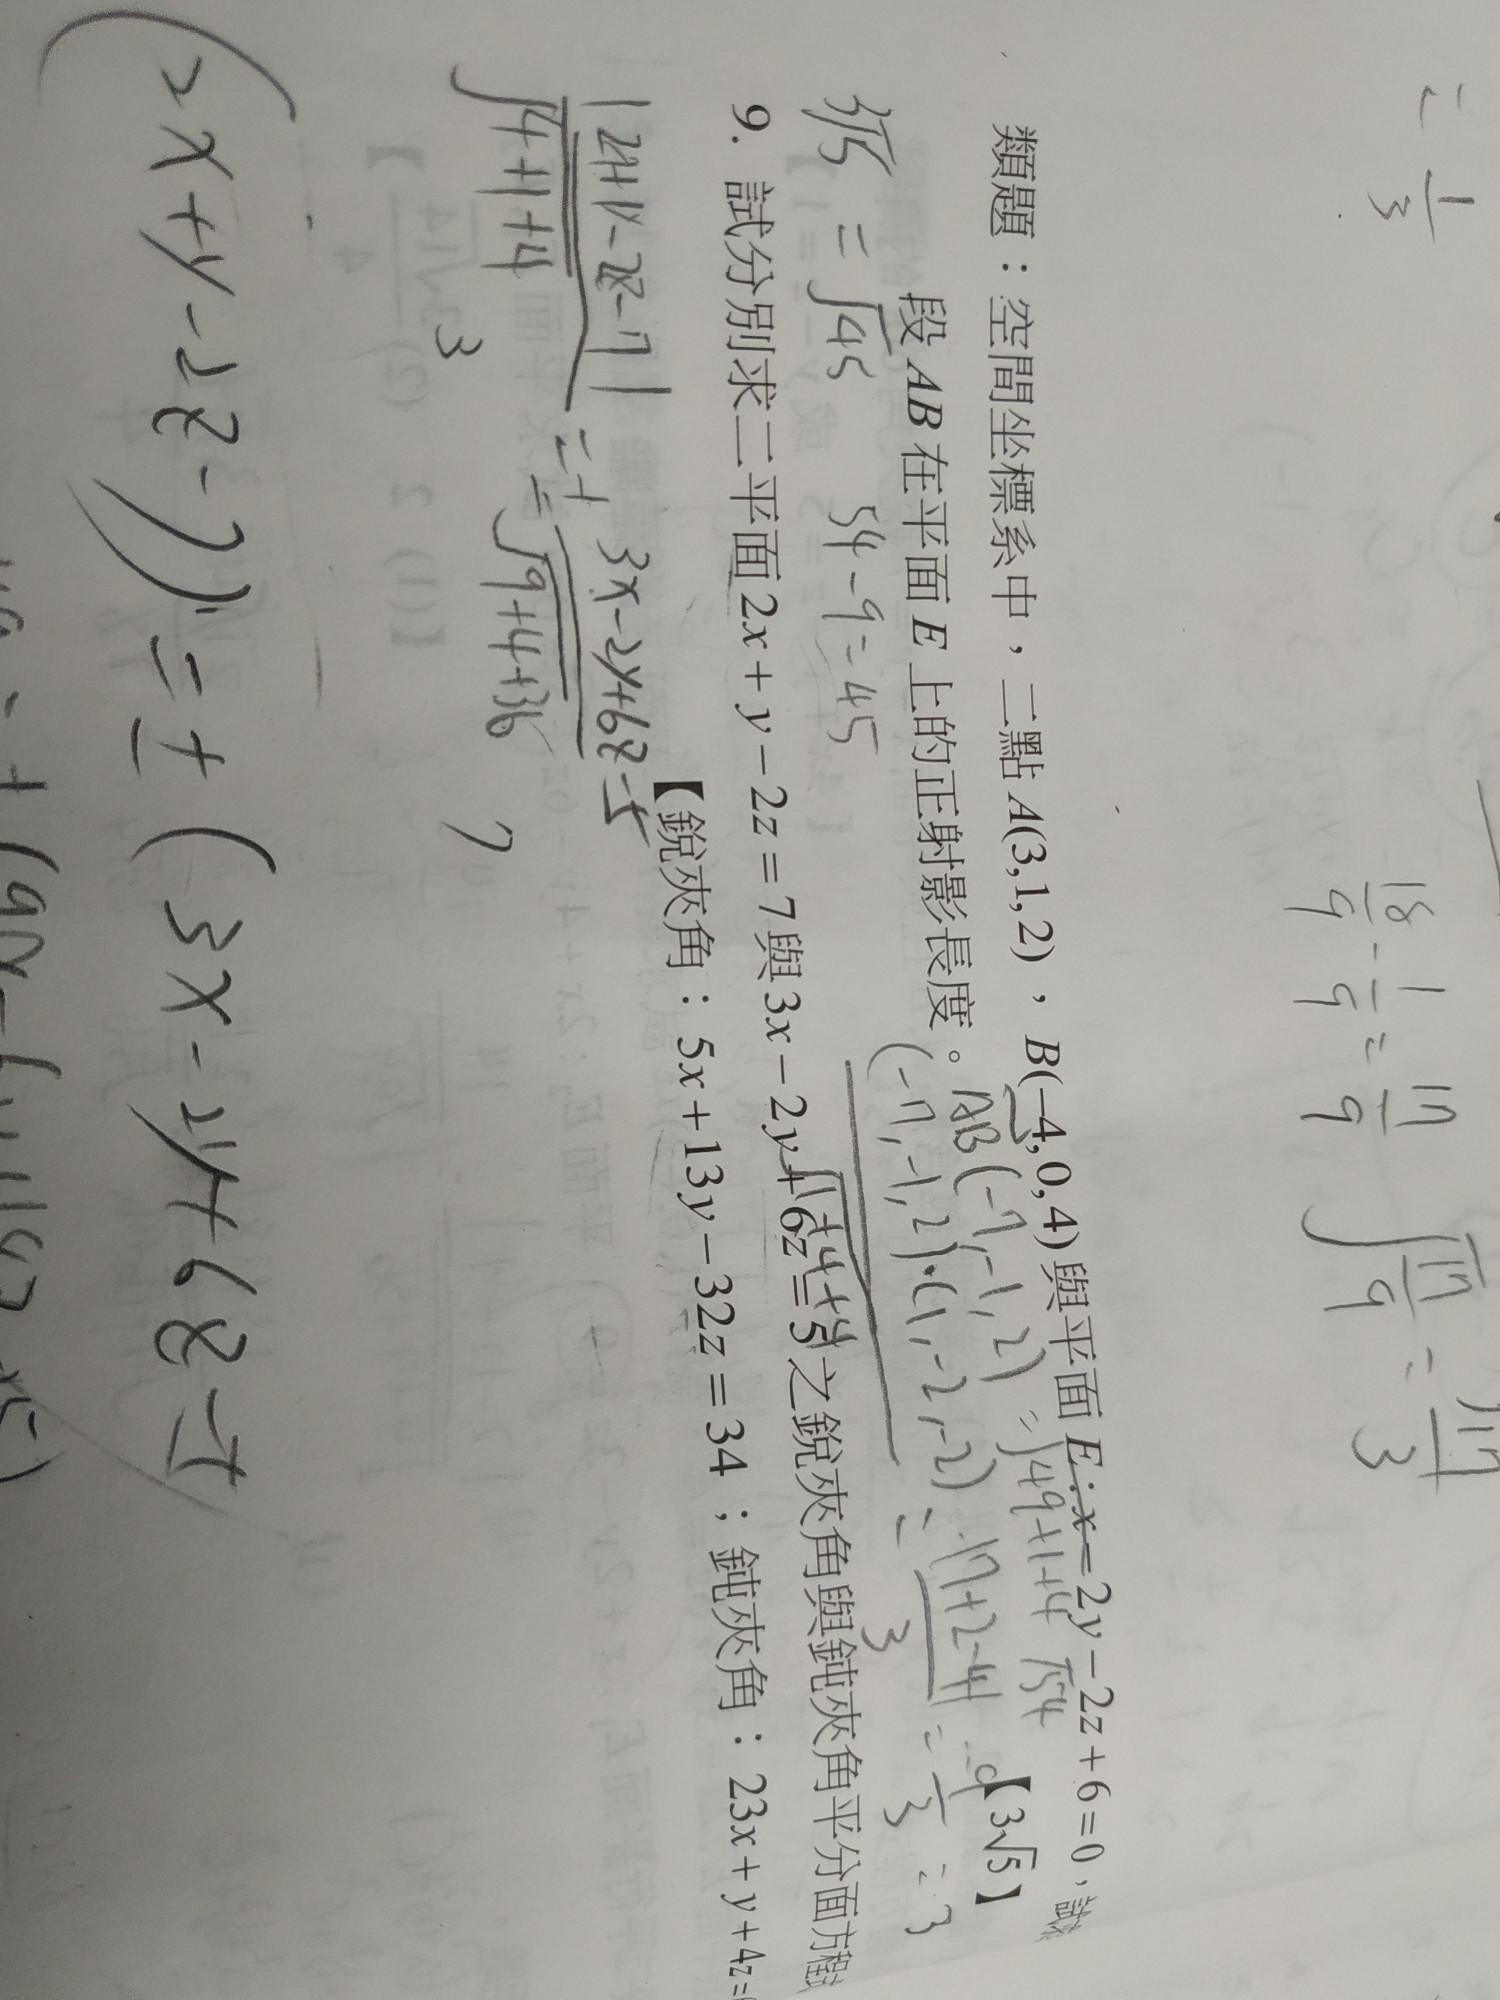 = 1/3
18/9 - 1/9 = 17/9 √(17/9) = √17/3
類題：空間坐標系中，二點A(3,1,2)，B(−4,0,4)與平面E:x−2y−2z+6=0，試求
段AB在平面E上的正射影長度。
【3√5】
AB(-7,-1,2) = √49+1+4 √54
(-7,-1,2)·(1,-2,-2)
√1+4+4
= |-7+2-4| / 3 = 9/3 = 3
3√5 = √45 54-9=45
9. 試分別求二平面2x+y−2z=7與3x−2y+6z=5之銳夾角與鈍夾角平分面方程
【銳夾角：5x+13y−32z=34；鈍夾角：23x+y+4z=
|2x+y-2z-7| / √4+1+4 = ± 3x-2y+6z-5 / √9+4+36
3 7
(2x+y-2z-7) = ± (3x-2y+6z-5